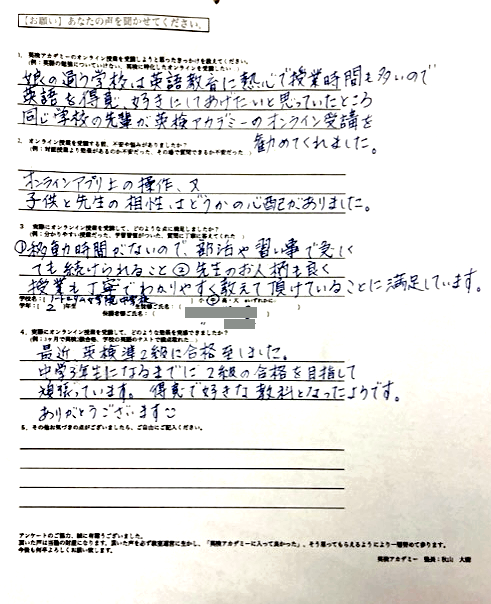 【お願い】あなたの声を聞かせてください。
1. 英検アカデミーのオンライン授業を受講しようと思ったきっかけを教えてください。
(例：英語の勉強についていけない、英検に特化したオンラインを受講したい)
娘の通う学校は英語教育に熱心で授業時間も多いので
英語を得意、好きにしてあげたいと思っていたところ
同じ学校の先輩が英検アカデミーのオンライン受講を
勧めてくれました。
2. オンライン授業を受講する前、不安や悩みがありましたか？
(例：対面授業より効果があるのか不安だった、その場で質問できるか不安だった)
オンラインアプリ上の操作、又
子供と先生の相性はどうかの心配がありました。
3. 実際にオンライン授業を受講して、どのような点に満足しましたか？
(例：分かりやすい授業だった、学習習慣がついた、質問に丁寧に答えてくれた)
①移動時間がないので、部活や習い事で忙しく
ても続けられること ②先生のお人柄も良く
授業も丁寧でわかりやすく教えて頂けていることに満足しています。
学校名：( 学院中学校 ) 小・中・高・大 いずれかに
学年：( 2 ) 年生 生徒様ご氏名：( )
保護者様ご氏名：( )
4. 実際にオンライン授業を受講して、どのような効果を実感できましたか？
(例：3ヶ月で英検2級合格、学校の英語のテストで満点取れた)
最近、英検準2級に合格致しました。
中学3年生になるまでに2級の合格を目指して
頑張っています。得意で好きな教科となったようです。
ありがとうございます☺
5. その他お気づきの点がございましたら、ご自由にご記入ください。
アンケートのご協力、誠に有難うございました。
頂いた声は当塾の財産になります。頂いた声を必ず教室運営に生かし、「英検アカデミーに入って良かった」、そう思ってもらえるようにより一層努めて参ります。
今後も何卒よろしくお願い致します。
英検アカデミー 塾長：秋山 大樹